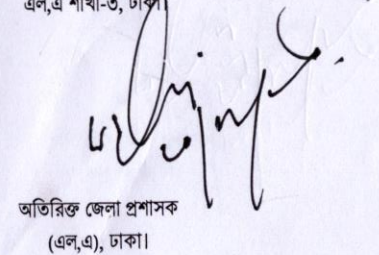 এল,এ শাখা-৩, ঢাকা।
অতিরিক্ত জেলা প্রশাসক
(এল,এ), ঢাকা।